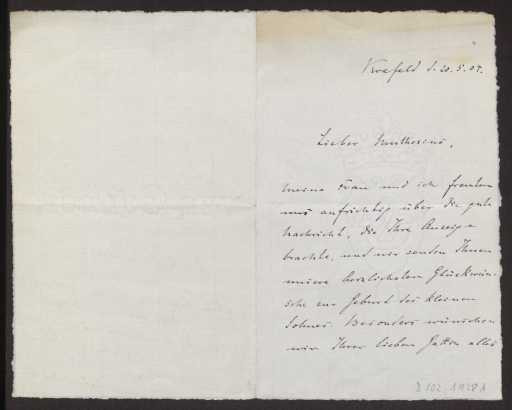 Krefeld d. 20.5.04.
Lieber Muthesius,
meine Frau und ich freuten
uns aufrichtig über die gute
Nachricht, die Ihre Anzeige
brachte, und wir senden Ihnen
unsere herzlichsten Glückwün-
sche zur Geburt des kleinen
Sohnes. Besonders wünschen
wir Ihrer lieben Gattin alles
D 102 1928 A